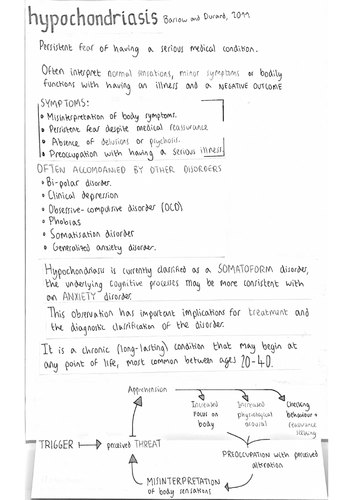 hypochondriasis Barlow and Durand, 2011
Persistent fear of having a serious medical condition.
Often interpret normal sensations, minor symptoms or bodily
functions with having an illness and a NEGATIVE OUTCOME
SYMPTOMS:
• Misinterpretation of body symptoms.
• Persistent fear despite medical reassurance
• Absence of delusions or psychosis.
• Preoccupation with having a serious illness.
OFTEN ACCOMPANIED BY OTHER DISORDERS
• Bi-polar disorder.
• Clinical depression
• Obsessive-compulsive disorder (OCD)
• Phobias
• Somatisation disorder
• Generalized anxiety disorder.
Hypochondriasis is currently classified as a SOMATOFORM disorder,
the underlying cognitive processes may be more consistent with
an ANXIETY disorder.
This observation has important implications for treatment and
the diagnostic classification of the disorder.
It is a chronic (long-lasting) condition that may begin at
any point of life, most common between ages 20-40.
Apprehension
Increased
focus on
body
Increased
physiological
arousal
Checking
behaviour +
reassurance
seeking
TRIGGER perceived THREAT
PREOCCUPATION with perceived
alteration
MISINTERPRETATION
of body sensations